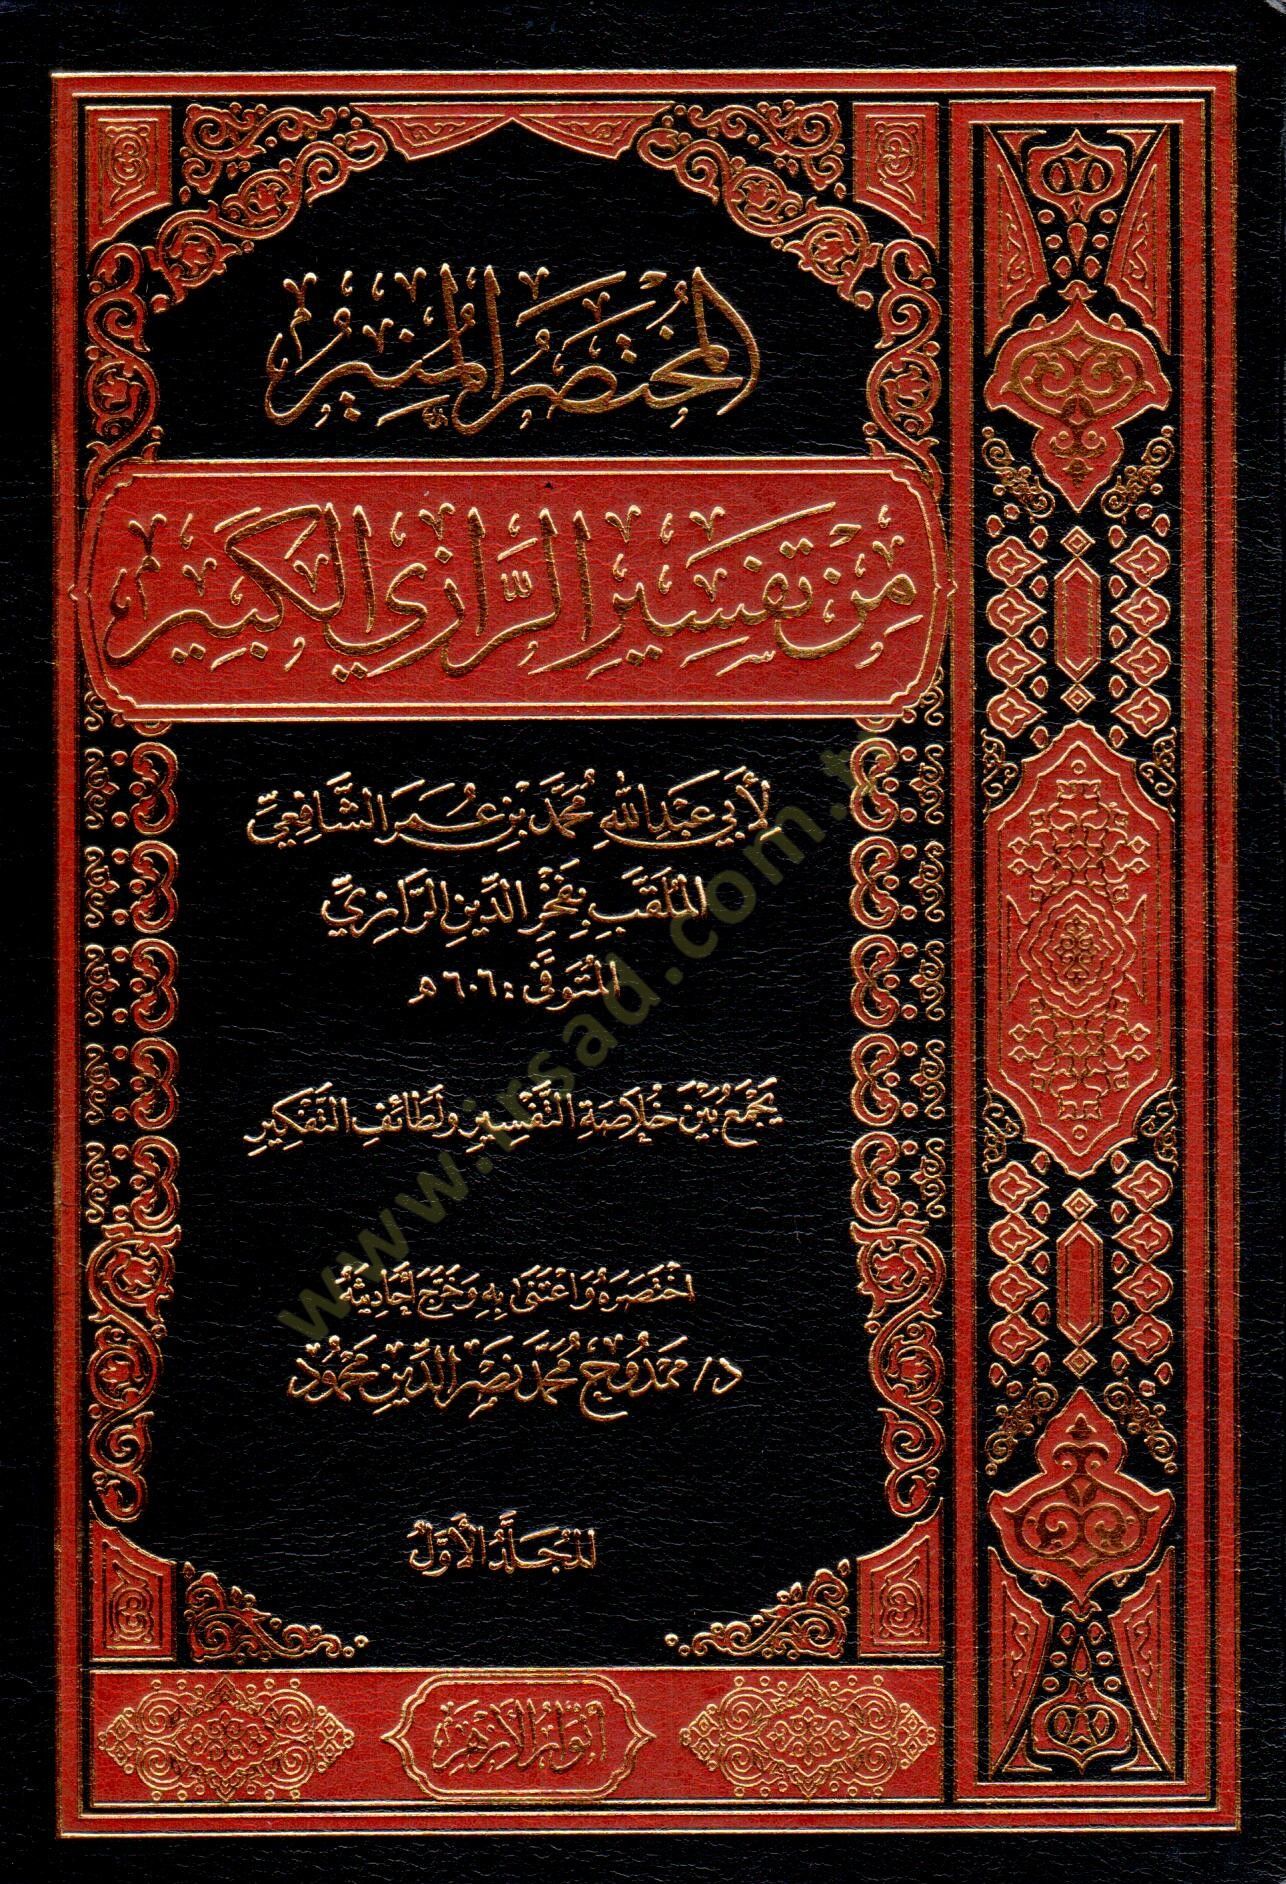 المُخْتَصَرُ المُنِيرُ
مِنْ تَفْسِيرِ الرَّازِيِّ الكَبِيرِ
لِأَبِي عَبْدِ اللهِ مُحَمَّدِ بْنِ عُمَرَ الشَّافِعِيِّ
المُلَقَّبِ بِفَخْرِ الدِّينِ الرَّازِيِّ
المُتَوَفَّى : ٦٠٦هـ
يَجْمَعُ بَيْنَ خُلَاصَةِ التَّفْسِيرِ وَلَطَائِفِ التَّفْكِيرِ
اخْتَصَرَهُ وَاعْتَنَى بِهِ وَخَرَّجَ أَحَادِيثَهُ
د/ مَمْدُوح مُحَمَّد نَصْر الدِّين مَحْمُود
المُجَلَّدُ الأَوَّلُ
أنوار الأزهر
www.irsad.com.tr